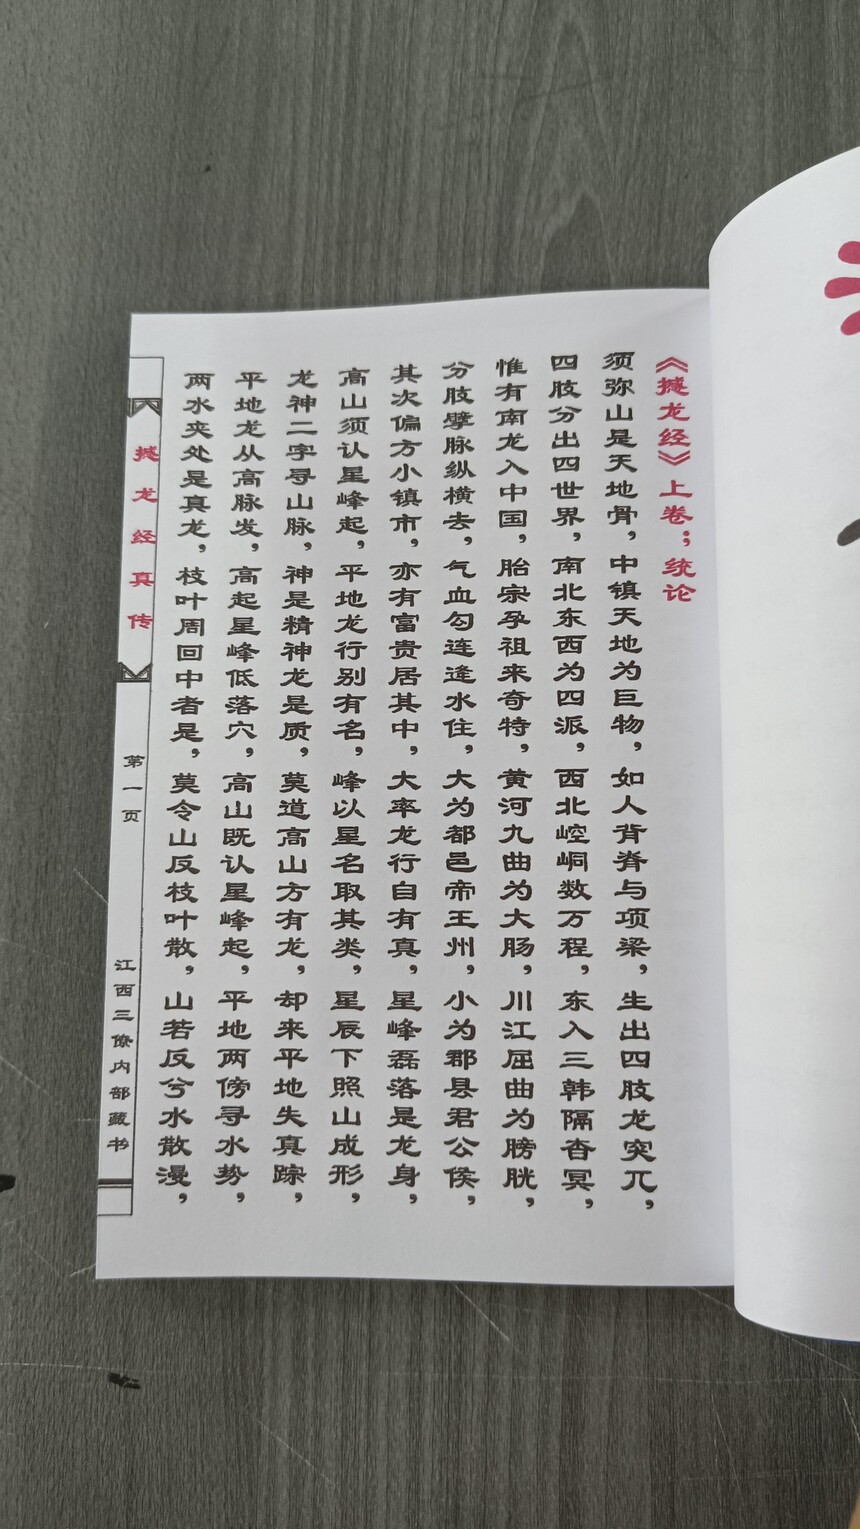 《撼龙经》上卷；统论
须弥山是天地骨，中镇天地为巨物，如人背脊与项梁，生出四肢龙突兀，
四肢分出四世界，南北东西为四派，西北崆峒数万程，东入三韩隔杳冥，
惟有南龙入中国，胎宗孕祖来奇特，黄河九曲为大肠，川江屈曲为膀胱，
分肢擘脉纵横去，气血勾连逢水住，大为都邑帝王州，小为郡县君公侯，
其次偏方小镇市，亦有富贵居其中，大率龙行自有真，星峰磊落是龙身，
高山须认星峰起，平地龙行别有名，峰以星名取其类，星辰下照山成形，
龙神二字寻山脉，神是精神龙是质，莫道高山方有龙，却来平地失真踪，
平地龙从高脉发，高起星峰低落穴，高山既认星峰起，平地两傍寻水势，
两水夹处是真龙，枝叶周回中者是，莫令山反枝叶散，山若反兮水散漫，
撼龙经真传
第一页
江西三僚内部藏书